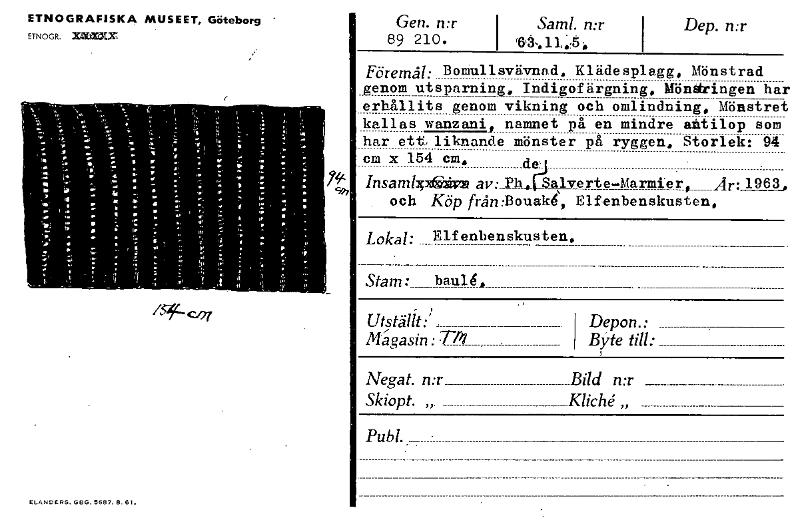 ETNOGRAFISKA MUSEET, Göteborg
ETNOGR.
94 cm
154 cm
ELANDERS. GBG. 5687. 8. 61.
Gen. n:r Saml. n:r Dep. n:r
89 210. 63.11.5.
Föremål: Bomullsvävnad. Klädesplagg. Mönstrad
genom utsparning. Indigofärgning. Mönstringen har
erhållits genom vikning och omlindning. Mönstret
kallas wanzani, namnet på en mindre antilop som
har ett liknande mönster på ryggen. Storlek: 94
cm x 154 cm.
Insaml. av: Ph. de Salverte-Marmier. År: 1963.
och Köp från: Bouaké, Elfenbenskusten.
Lokal: Elfenbenskusten.
Stam: baulé.
Utställt: Depon.:
Magasin: TM Byte till:
Negat. n:r Bild n:r
Skiopt. „ Kliché „
Publ.